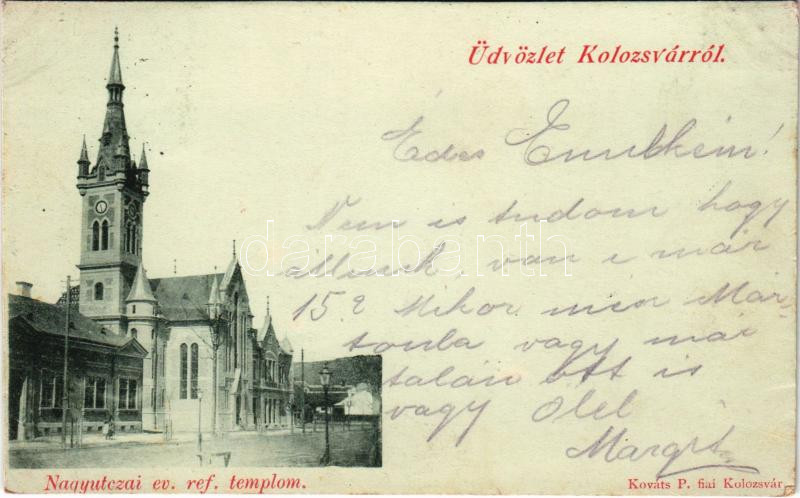 Üdvözlet Kolozsvárról.
Édes Emilkém!
Nem is tudom hogy
állunk, van e már
15? Mikor mész Már-
tonba vagy már
talán ott is
vagy Ölel
Margit
darabanth
Nagyutczai ev. ref. templom.
Kováts P. fiai Kolozsvár